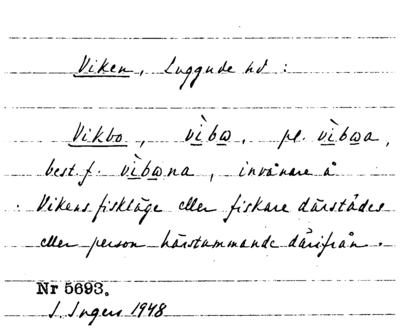 Viken, Luggude hd :
Vikbo, vìbω, pl. vìbωa,
best.f. vìbωna, invånare å
Vikens fiskläge eller fiskare därstädes
eller person härstammande därifrån.
Nr 5693.
I. Ingers 1948